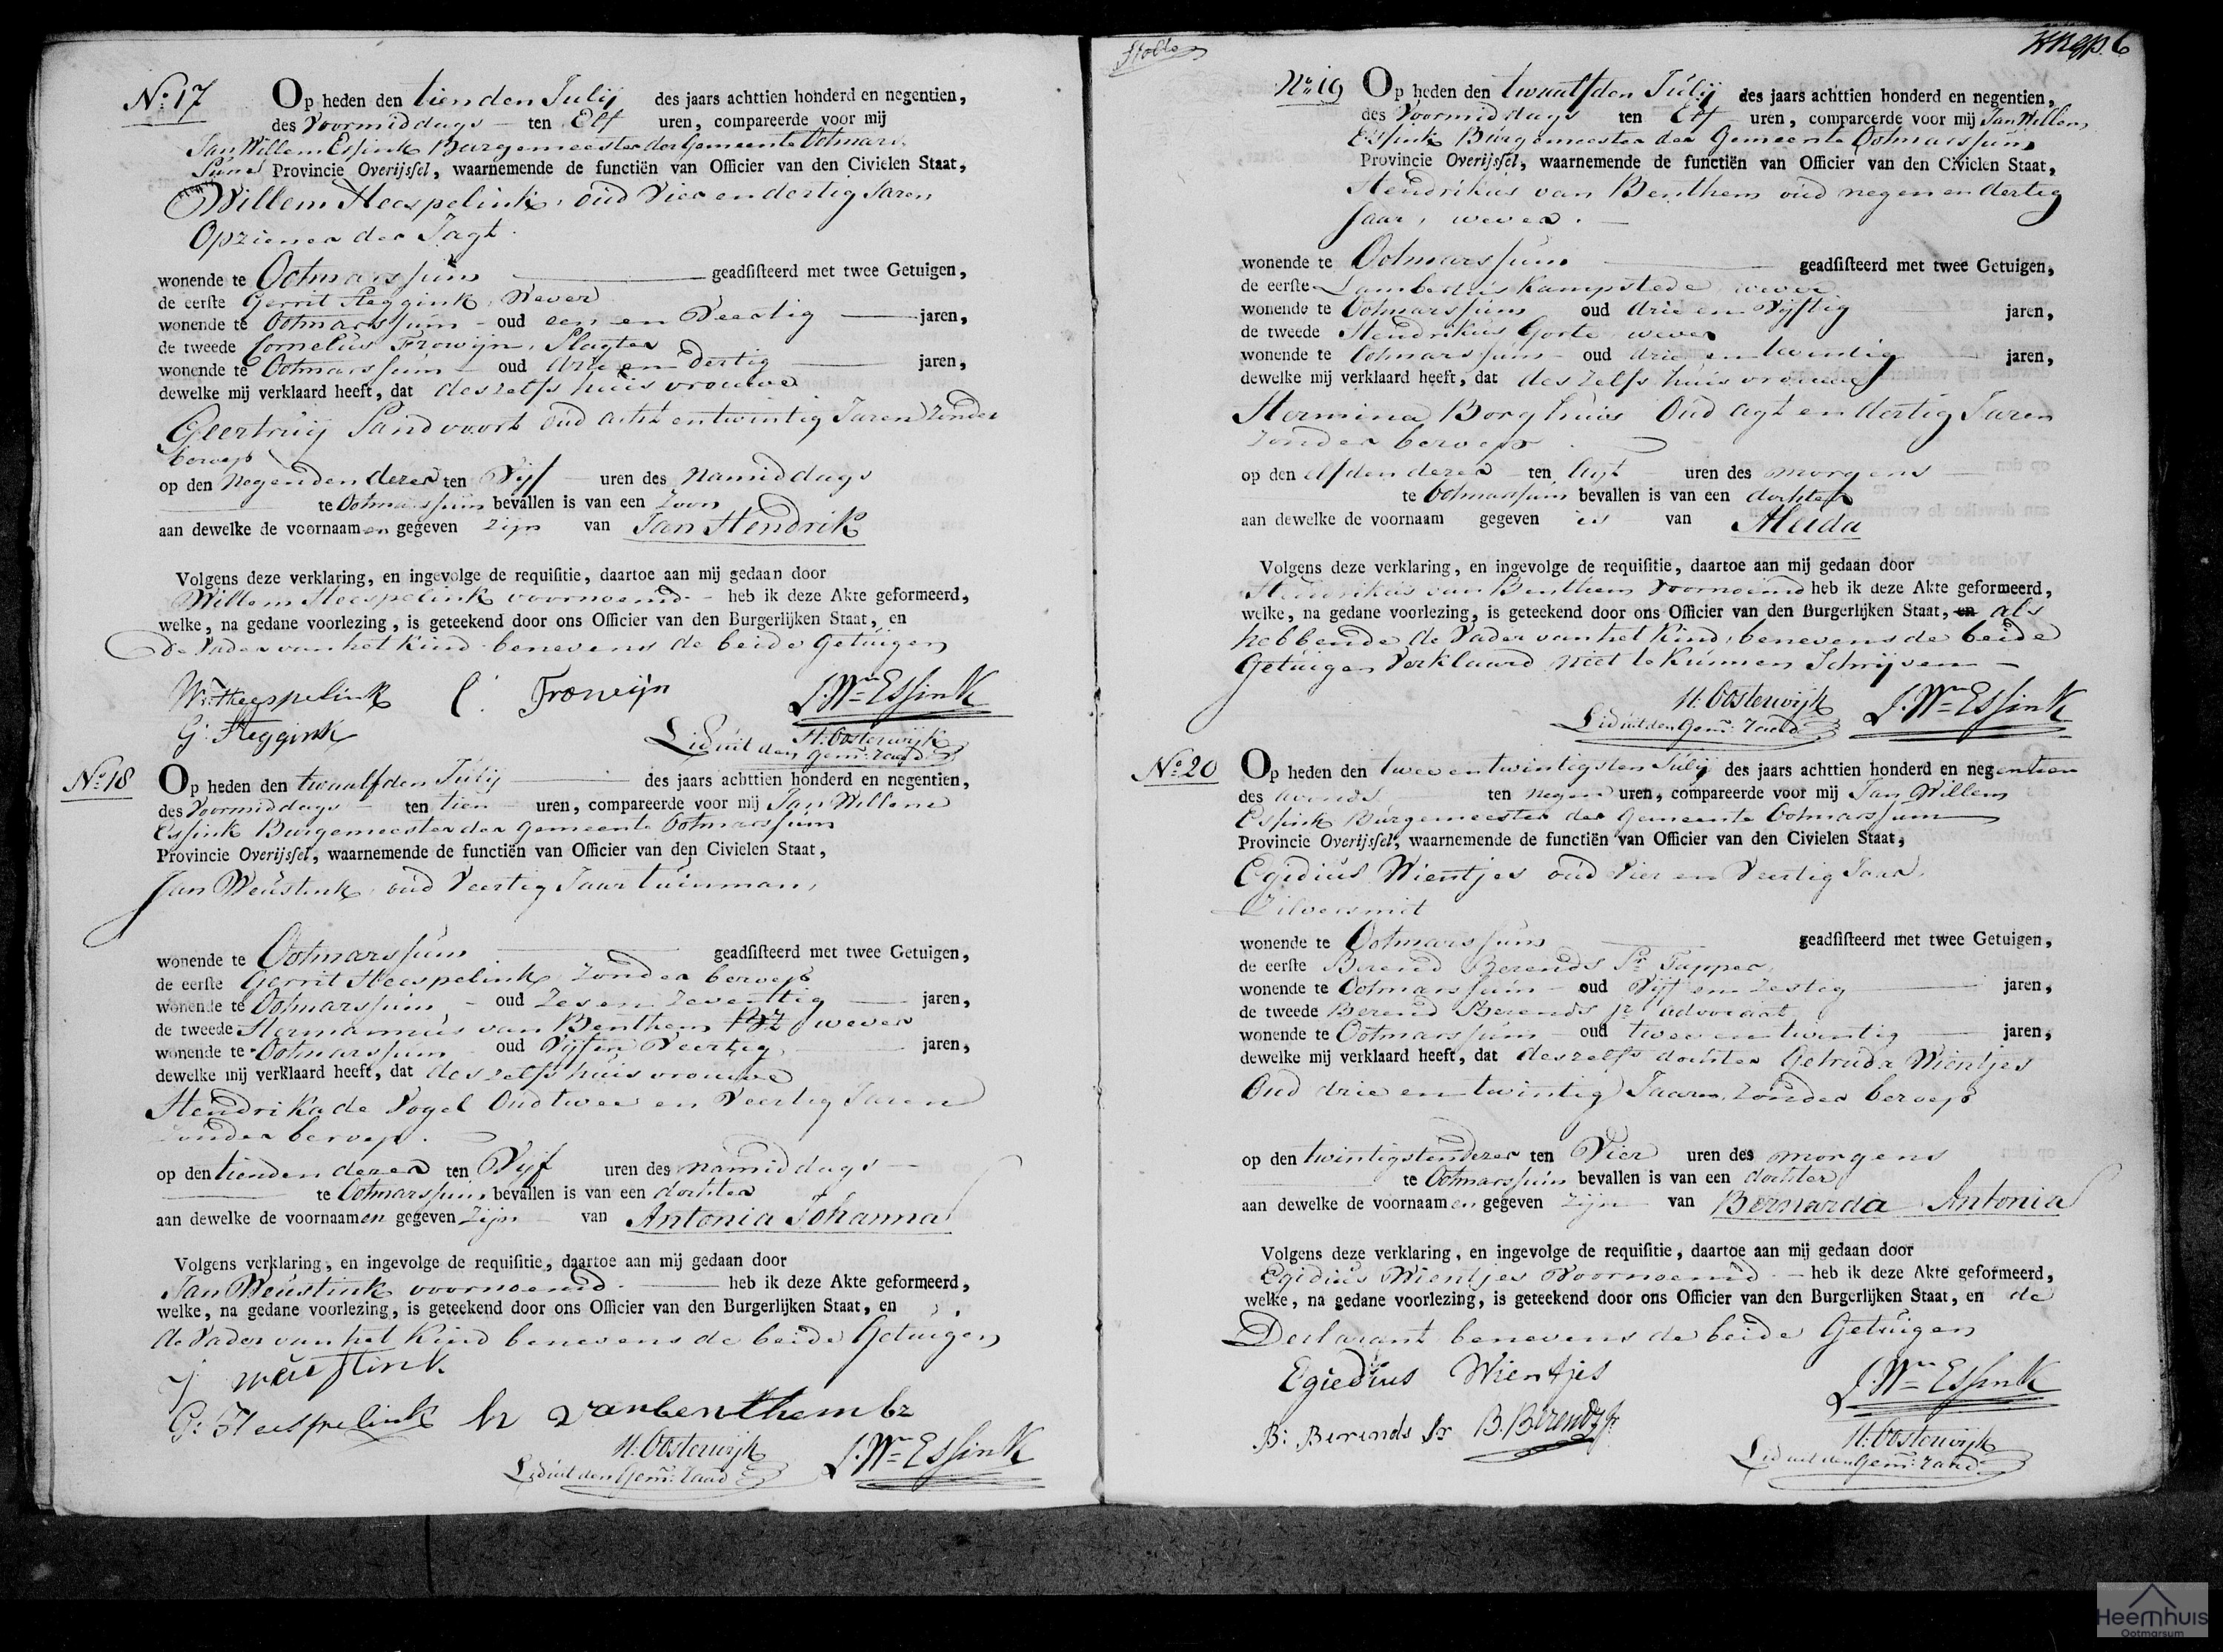 N.o 17
Op heden den tienden Julij des jaars achttien honderd en negentien,
des Voormiddags ten Elf uren, compareerde voor mij
Jan Willem Essink Burgemeester der Gemeente Ootmars-
sum Provincie Overijssel, waarnemende de functiën van Officier van den Civielen Staat,
Willem Heespelink, oud Vier en dertig Jaren
Opziener der Jagt.
wonende te Ootmarssum geadsisteerd met twee Getuigen,
de eerste Gerrit Heggink, Wever
wonende te Ootmarssum - oud een en Veertig jaren,
de tweede Cornelus Frowijn, Slagter
wonende te Ootmarssum - oud drie en dertig jaren,
dewelke mij verklaard heeft, dat deszelfs huisvrouwe
Geertruij Sandvoort oud acht en twintig Jaren zonder
beroep
op den Negenden dezer ten Vijf uren des Namiddags
te Ootmarssum bevallen is van een Zoon
aan dewelke de voornaamen gegeven zijn van Jan Hendrik
Volgens deze verklaring, en ingevolge de requisitie, daartoe aan mij gedaan door
Willem Heespelink voornoemd - heb ik deze Akte geformeerd,
welke, na gedane voorlezing, is geteekend door ons Officier van den Burgerlijken Staat, en
de Vader van het Kind benevens de beide Getuigen
Wm Heespelink C. Frowijn J. Wm Essink
G. Heggink H. Oosterwijk
Lid uit den Gem: raad
N.o 18
Op heden den twaalfden Julij des jaars achttien honderd en negentien,
des Voormiddags ten tien uren, compareerde voor mij Jan Willem
Essink Burgemeester der Gemeente Ootmarssum
Provincie Overijssel, waarnemende de functiën van Officier van den Civielen Staat,
Jan Weustink, oud Veertig Jaar tuinman,
wonende te Ootmarssum geadsisteerd met twee Getuigen,
de eerste Gerrit Heespelink, zonder beroep
wonende te Ootmarssum - oud Zes en Zeventig jaren,
de tweede Hermannus van Benthem Bz wever
wonende te Ootmarssum oud Vijf en Veertig jaren,
dewelke mij verklaard heeft, dat deszelfs huisvrouwe
Hendrika de Vogel Oud twee en Veertig Jaren
zonder beroep.
op den tienden dezer ten Vijf uren des namiddags
te Ootmarssum bevallen is van een dochter
aan dewelke de voornaamen gegeven zijn van Antonia Johanna
Volgens verklaring, en ingevolge de requisitie, daartoe aan mij gedaan door
Jan Weustink voornoemd. heb ik deze Akte geformeerd,
welke, na gedane voorlezing, is geteekend door ons Officier van den Burgerlijken Staat, en
de Vader van het Kind benevens de beide Getuigen
J weustink
G: Heespelink h vanbenthem bz
H. Oosterwijk J. Wm Essink
Lid uit den Gem: raad
Knap. 6
N.o 19 Op heden den twaalfden Julij des jaars achttien honderd en negentien,
des Voormiddags ten Elf uren, compareerde voor mij Jan Willem
Essink Burgemeester der Gemeente Ootmarssum
Provincie Overijssel, waarnemende de functiën van Officier van den Civielen Staat,
Hendrikus van Benthem oud negen en dertig
Jaar, wever.
wonende te Ootmarssum geadsisteerd met twee Getuigen,
de eerste Lambertus Kampstede, wever
wonende te Ootmarssum oud drie en Vijftig jaren,
de tweede Hendrikus Gorte, wever
wonende te Ootmarssum - oud drie en twintig jaren,
dewelke mij verklaard heeft, dat deszelfs huisvrouwe
Hermina Borghuis Oud agt en dertig Jaren
zonder beroep.
op den elfden dezer ten Agt uren des morgens
te Ootmarssum bevallen is van een dochter
aan dewelke de voornaam gegeven is van Aleida
Volgens deze verklaring, en ingevolge de requisitie, daartoe aan mij gedaan door
Hendrikus van Benthem Voornoemd heb ik deze Akte geformeerd,
welke, na gedane voorlezing, is geteekend door ons Officier van den Burgerlijken Staat, en als
hebbende de Vader van het Kind, benevens de beide
Getuigen Verklaard niet te kunnen Schrijven
H. Oosterwijk J. Wm Essink
Lid uit den Gem: raad
N.o 20 Op heden den twee en twintigsten Julij des jaars achttien honderd en negentien
des avonds ten negen uren, compareerde voor mij Jan Willem
Essink Burgemeester der Gemeente Ootmarssum
Provincie Overijssel, waarnemende de functiën van Officier van den Civielen Staat,
Egidius Wientjes oud Vier en Veertig Jaar,
Zilversmit
wonende te Ootmarssum geadsisteerd met twee Getuigen,
de eerste Berend Berends Sr Tapper,
wonende te Ootmarssum - oud Vijf en zestig jaren,
de tweede Berend Berends jr advocaat
wonende te Ootmarssum - oud twee en twintig jaren,
dewelke mij verklaard heeft, dat deszelfs dochter Getruda Wientjes
Oud drie en twintig Jaaren, zonder beroep
op den twintigsten dezer ten Vier uren des morgens
te Ootmarssum bevallen is van een dochter
aan dewelke de voornaamen gegeven zijn van Bernarda Antonia
Volgens deze verklaring, en ingevolge de requisitie, daartoe aan mij gedaan door
Egidius Wientjes Voornoemd - heb ik deze Akte geformeerd,
welke, na gedane voorlezing, is geteekend door ons Officier van den Burgerlijken Staat, en de
Declarant benevens de beide Getuigen
Egiedius Wientjes J. Wm Essink
B: Berends Sr B. Berends Jr
H. Oosterwijk
Lid uit den Gem: raad
Heemhuis
Ootmarsum